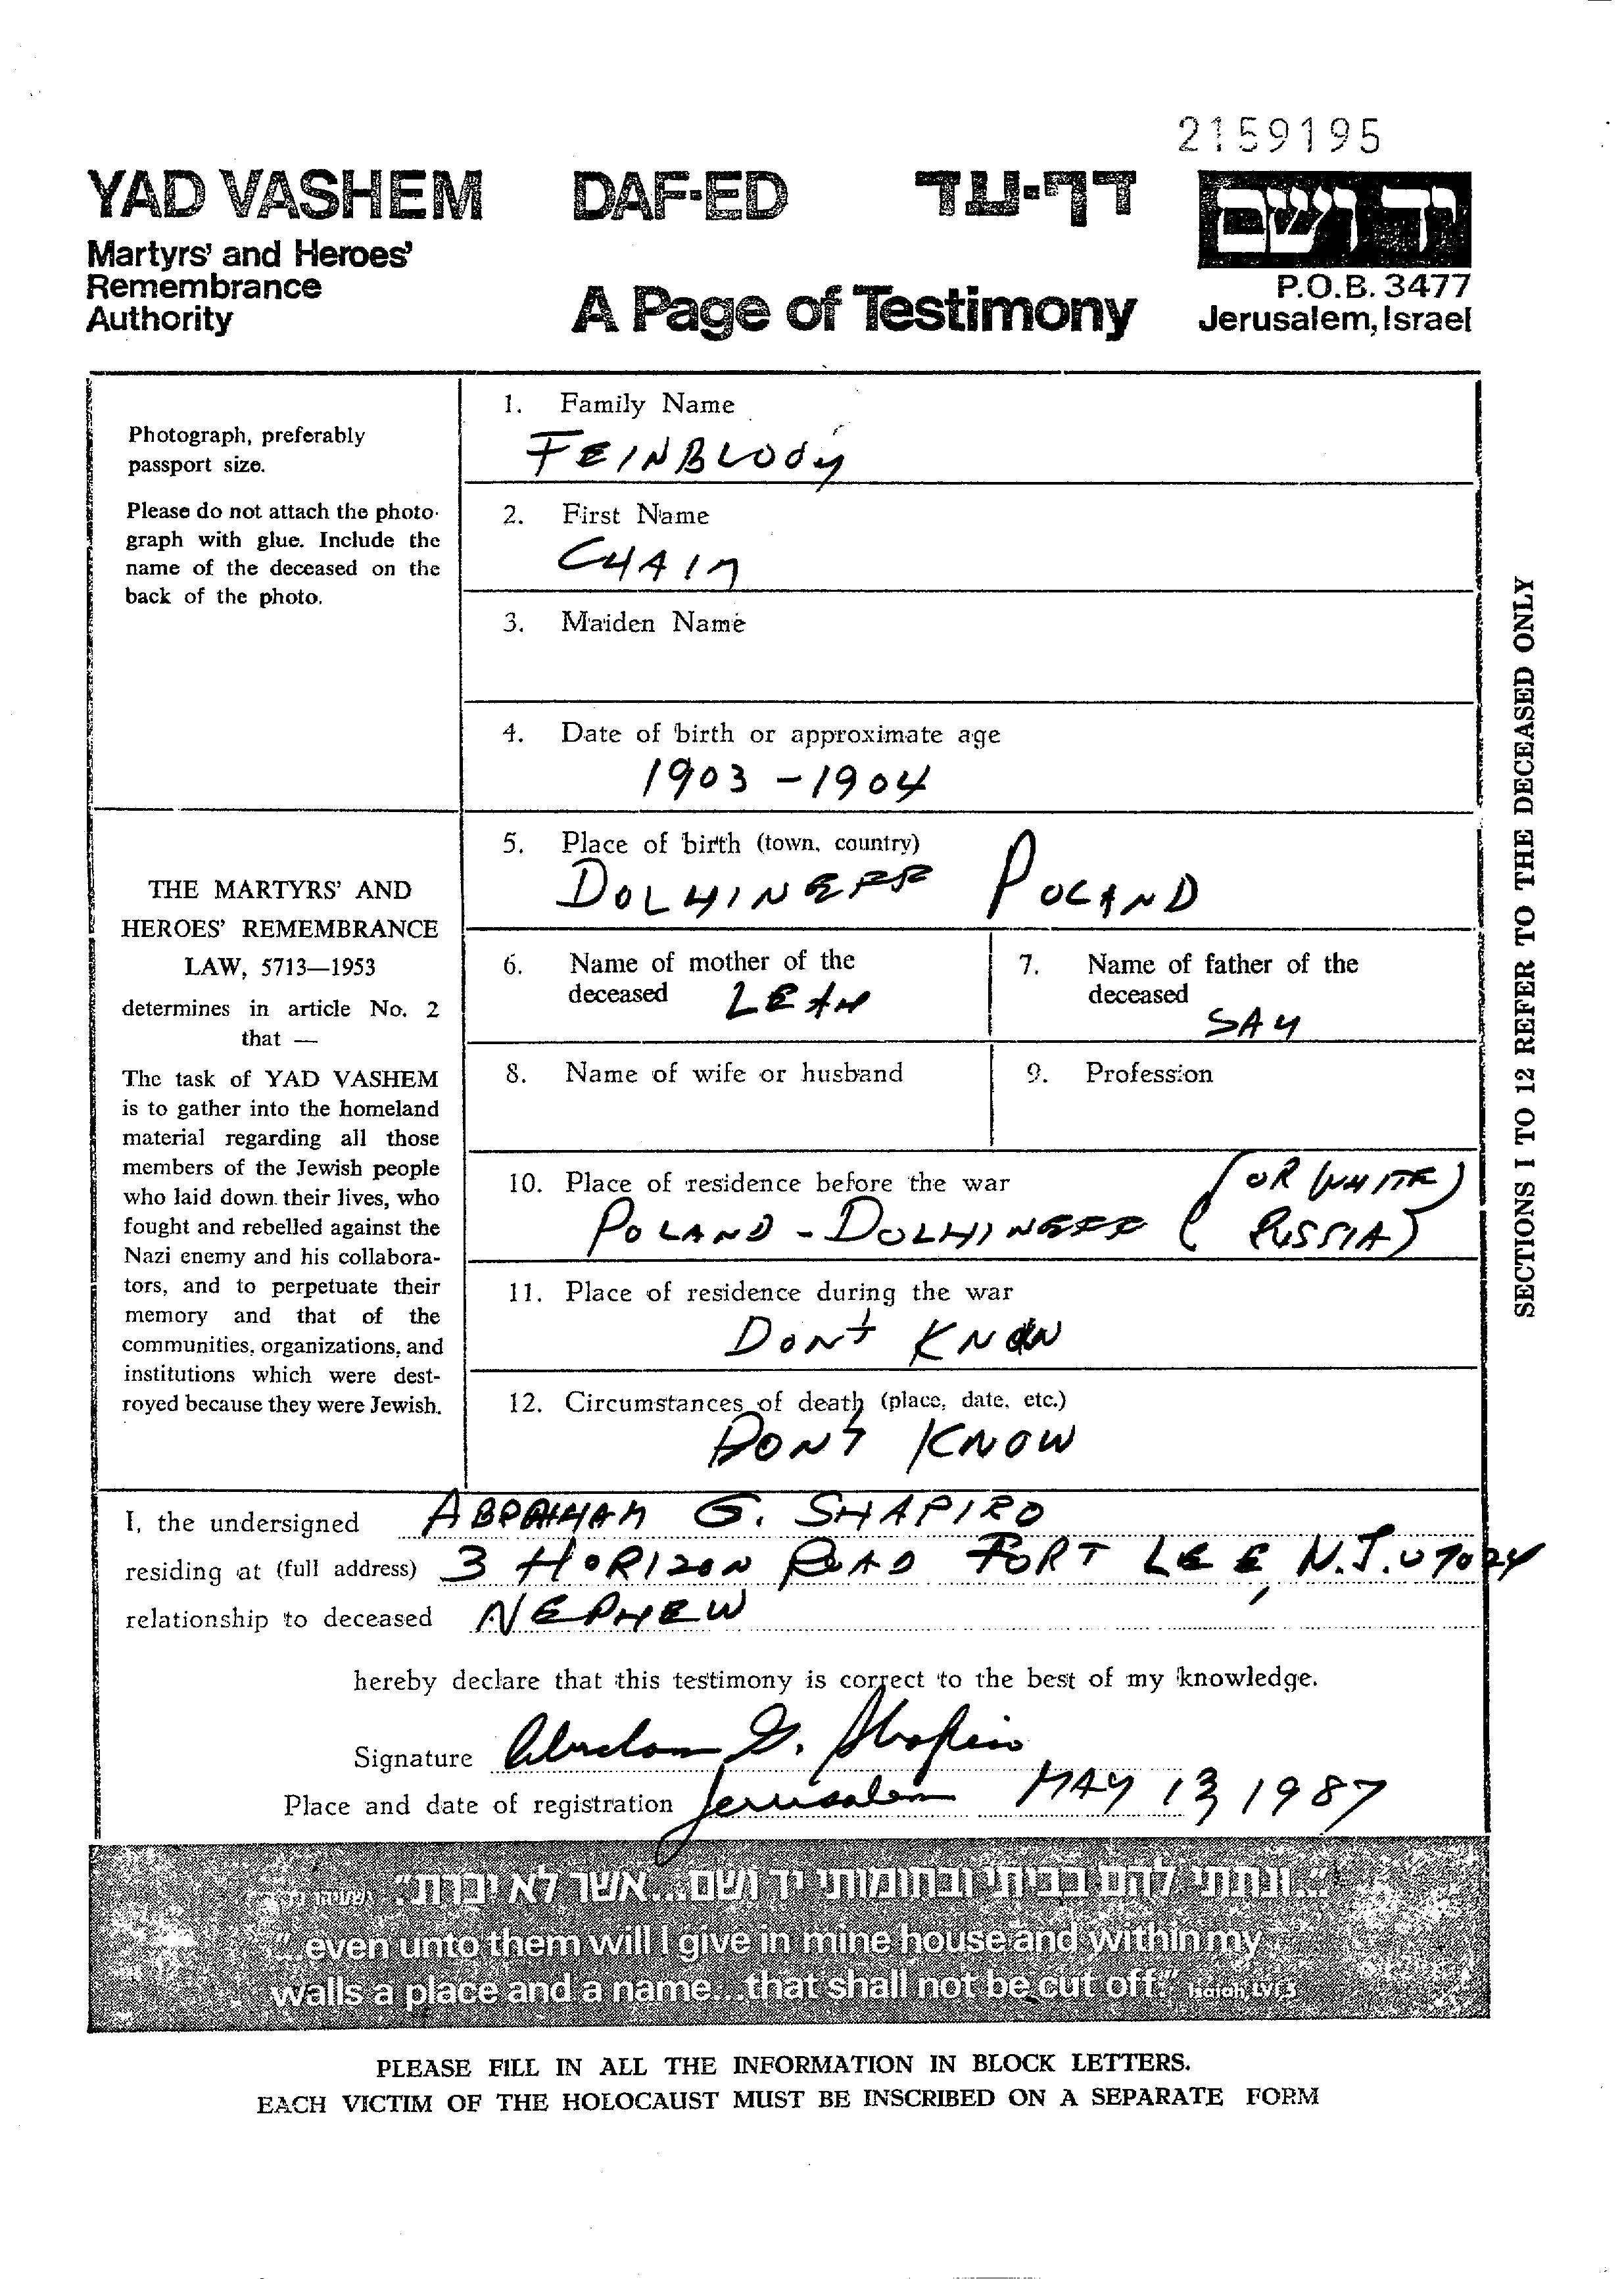 2159195
YAD VASHEM DAF-ED דף-עד ידושם
Martyrs' and Heroes'
Remembrance
Authority
A Page of Testimony
P.O.B. 3477
Jerusalem, Israel
Photograph, preferably
passport size.
Please do not attach the photo-
graph with glue. Include the
name of the deceased on the
back of the photo.
1. Family Name
FEINBLOOM
2. First Name
CHAIM
3. Maiden Name
4. Date of birth or approximate age
1903 - 1904
THE MARTYRS' AND
HEROES' REMEMBRANCE
LAW, 5713—1953
determines in article No. 2
that —
The task of YAD VASHEM
is to gather into the homeland
material regarding all those
members of the Jewish people
who laid down their lives, who
fought and rebelled against the
Nazi enemy and his collabora-
tors, and to perpetuate their
memory and that of the
communities, organizations, and
institutions which were dest-
royed because they were Jewish.
5. Place of birth (town, country)
DOLHINEFF POLAND
6. Name of mother of the
deceased LEAH
7. Name of father of the
deceased
8. Name of wife or husband
9. Profession
10. Place of residence before the war
POLAND - DOLHINEFF (OR WHITE)
( RUSSIA)
11. Place of residence during the war
DONT KNOW
12. Circumstances of death (place, date, etc.)
DONT KNOW
SECTIONS 1 TO 12 REFER TO THE DECEASED ONLY
I, the undersigned ABRAHAM G. SHAPIRO
residing at (full address) 3 HORIZON ROAD FORT LEE, N.J. 07024
relationship to deceased NEPHEW
hereby declare that this testimony is correct to the best of my knowledge.
Signature Abraham G. Shapiro
Place and date of registration Jerusalem MAY 13, 1987
"...ונתתי להם בביתי ובחומותי יד ושם...אשר לא יכרת"
"...even unto them will I give in mine house and within my
walls a place and a name...that shall not be cut off." Isaiah LVI,5
PLEASE FILL IN ALL THE INFORMATION IN BLOCK LETTERS.
EACH VICTIM OF THE HOLOCAUST MUST BE INSCRIBED ON A SEPARATE FORM